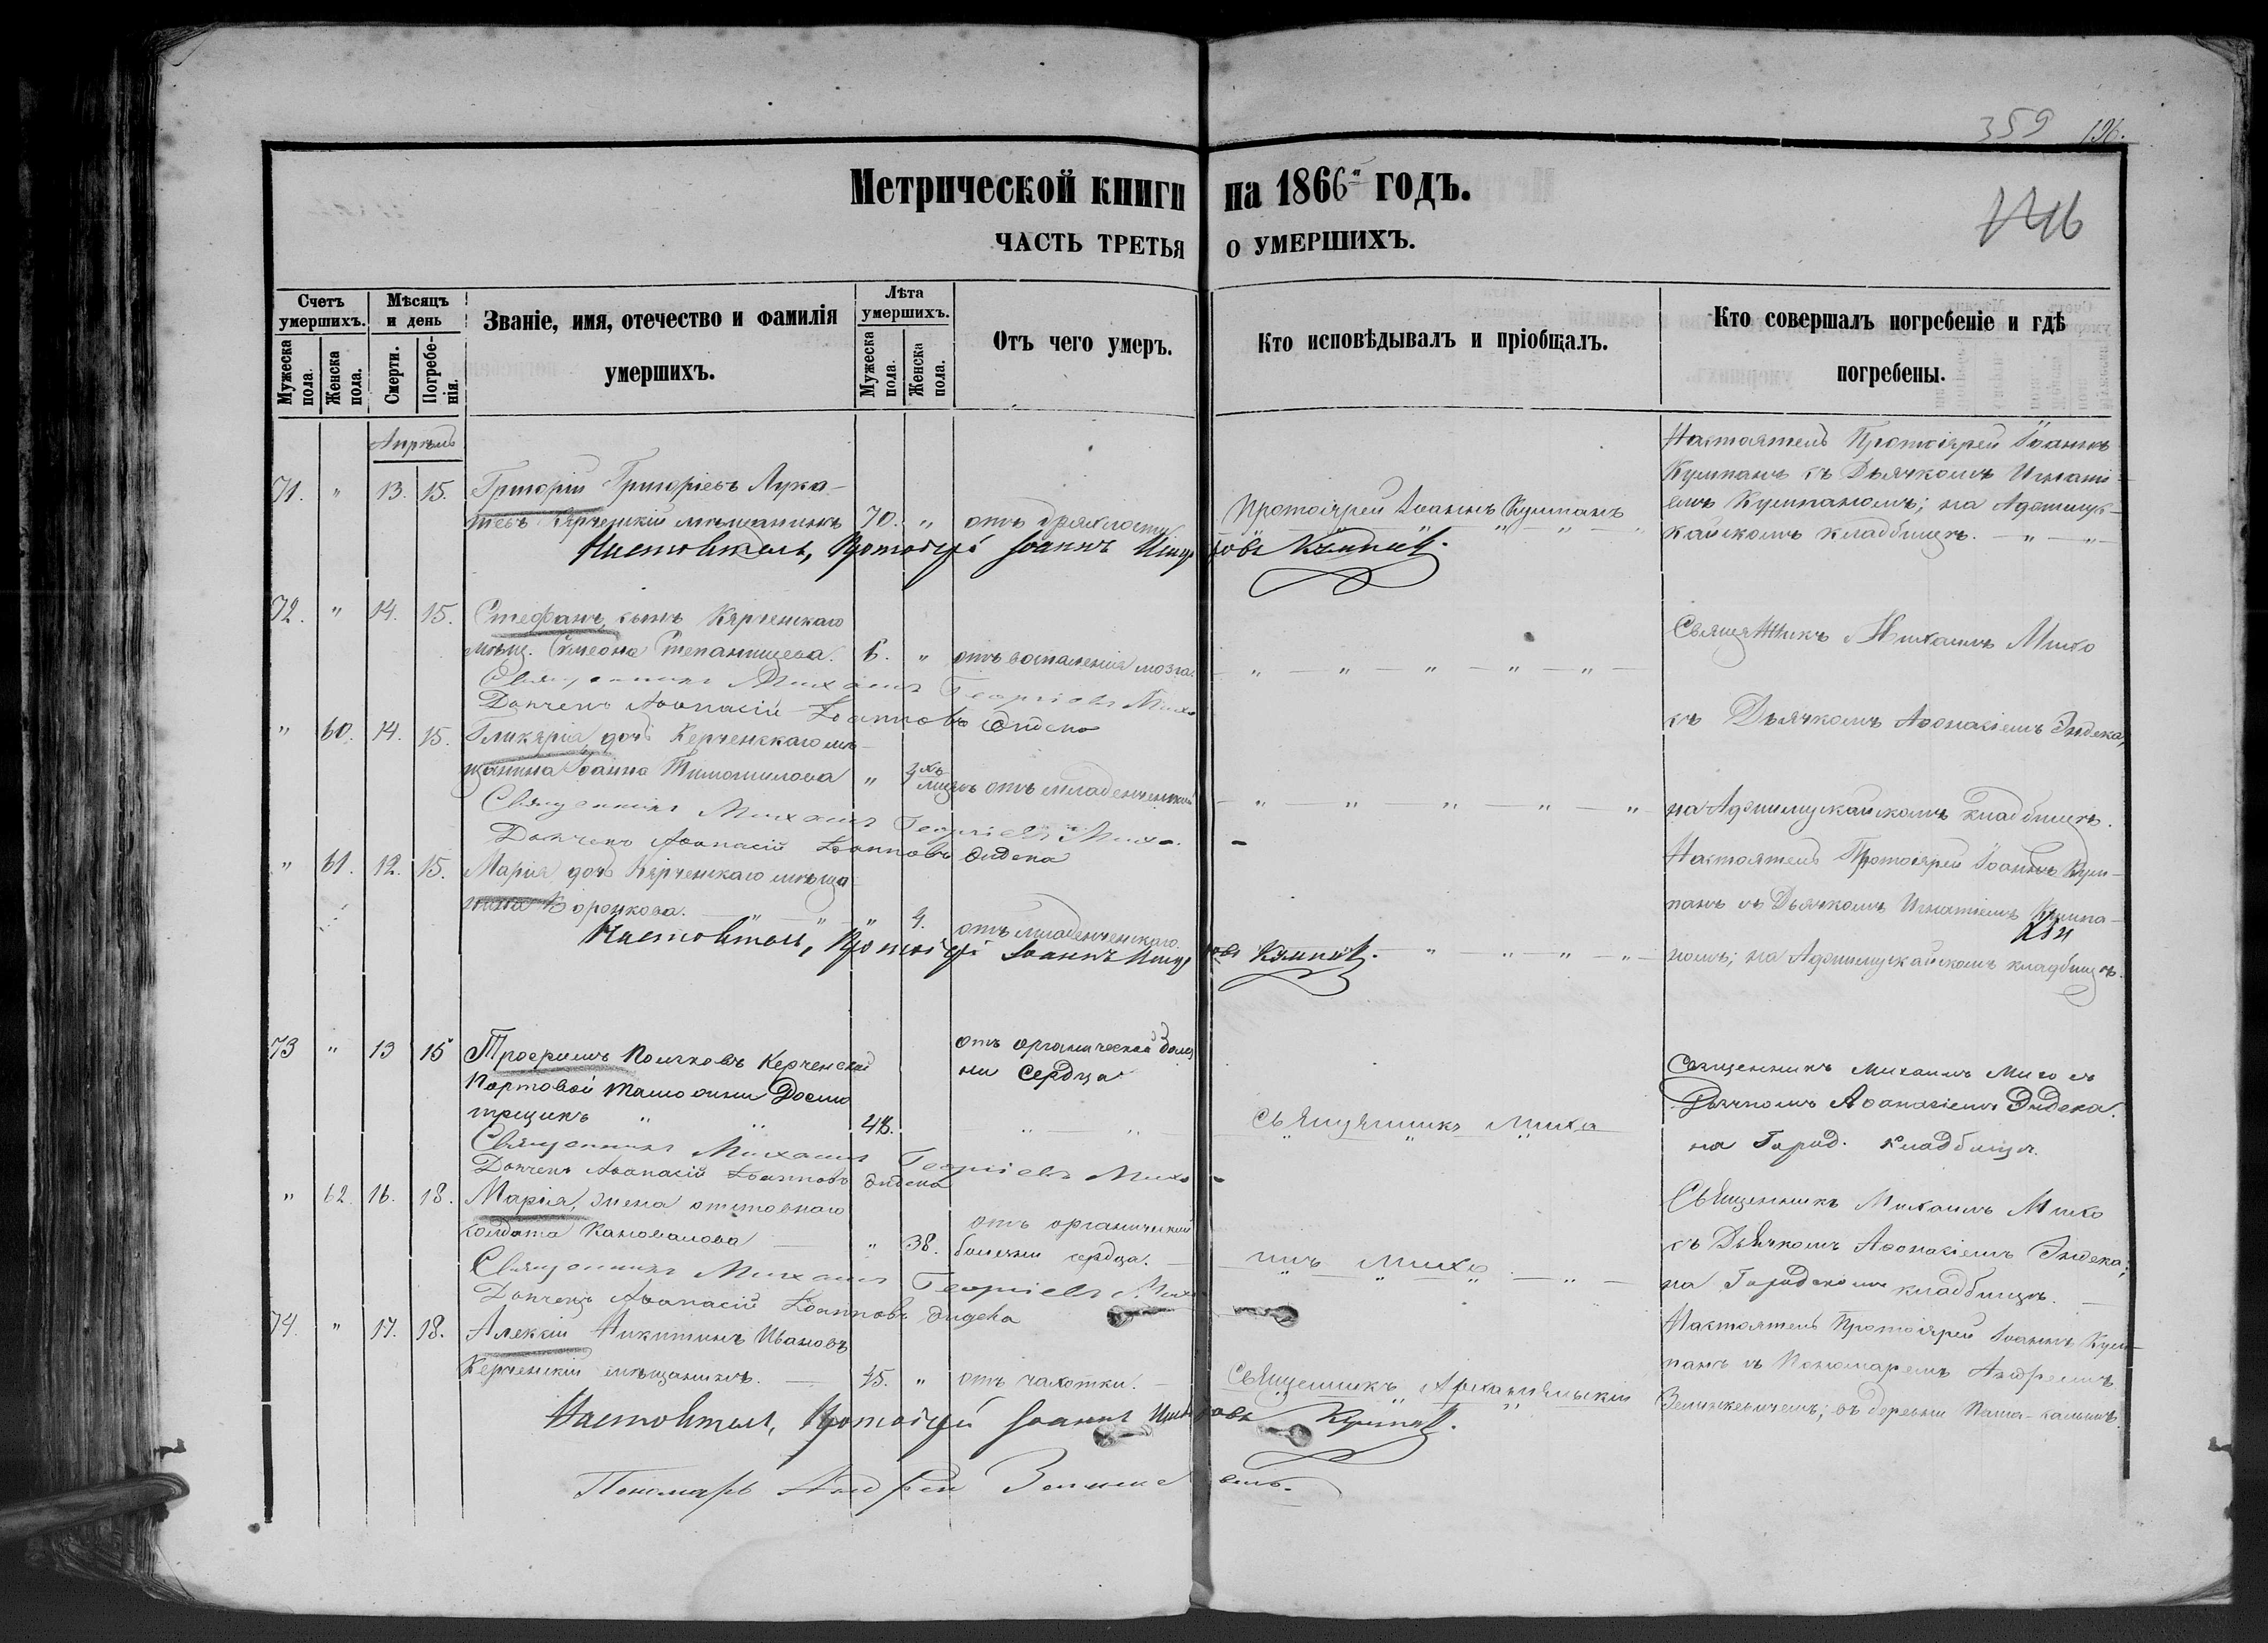 359 196.
Метрической книги на 1866й годъ.
146
ЧАСТЬ ТРЕТЬЯ О УМЕРШИХЪ.
Счетъ умершихъ.
Мужеска пола.
Женска пола.
Мѣсяцъ и день
Смерти.
Погребенія.
Званіе, имя, отечество и фамилія
умершихъ.
Лѣта умершихъ.
Мужеска пола.
Женска пола.
Отъ чего умеръ.
Кто исповѣдывалъ и пріобщалъ.
Кто совершалъ погребеніе и гдѣ
погребены.
Апрѣль
71. " 13. 15. Григорій Григоріевъ Лука-
Керченскій мѣщанинъ 70. " отъ дряхлости
Протоіерей Іоаннъ Кумпанъ
Настоятель Протоіерей Іоаннъ
Кумпанъ съ Дьячкомъ Игнаті-
емъ Кумпаномъ; на Аджимуш-
кайскомъ кладбищѣ.
Настоятель, Протоіерей Іоаннъ
72. " 14. 15. Стефанъ, сынъ Керченскаго
мѣщ. Симеона Степанищева. 6. " отъ воспаленія мозга.
Священникъ Михаилъ Михо
Священникъ Михаилъ Георгіевъ Михо
Дьячекъ Аѳанасій Іоанновъ Эндека
съ Дьячкомъ Аѳонасіемъ Эндека,
" 60. 14. 15. Гликерія, дочь Керченскаго мѣ-
щанина Іоанна " мцъ отъ младенческой
на Аджимушкайскомъ кладбищѣ.
Священникъ Михаилъ Георгіевъ Михо.
Дьячекъ Аѳанасій Іоанновъ Эндека
" 61. 12. 15. Марія дочь Керченскаго мѣща-
нина Воронкова. " 4. отъ младенческаго.
Настоятель Протоіерей Іоаннъ Кум-
панъ съ Дьячкомъ Игнатіемъ Кумпа-
номъ; на Аджимушкайскомъ кладбищѣ.
Настоятель, Протоіерей Іоаннъ
73 " 13 15 Трофимъ Керченской
Портовой Таможни Досмо
трщикъ 48.
отъ органической болѣз
ни сердца
Священникъ Михо
Священникъ Михаилъ Михо съ
Дьячкомъ Аѳанасіемъ Эндека.
на Город. кладбищѣ.
Священникъ Михаилъ Георгіевъ Михо
Дьячекъ Аѳанасій Іоанновъ Эндека
" 62. 16. 18. Марія, жена отставнаго
солдата Коновалова " 38. отъ органической
болезни сердца.
Михо
Священникъ Михаилъ Михо
съ Дьячкомъ Аѳонасіемъ Эндека;
на Городскомъ кладбищѣ.
Священникъ Михаилъ Георгіевъ Михо
Дьячекъ Аѳанасій Іоанновъ Эндека
74. " 17. 18. Алексій Никитинъ Ивановъ
Керченскій мѣщанинъ. 45. " отъ чахотки.
Священникъ Архангельскій
Настоятель Протоіерей Іоаннъ Кум-
панъ съ Пономаремъ Андреемъ
въ деревни
Настоятель, Протоіерей Іоаннъ
Пономарь Андрей